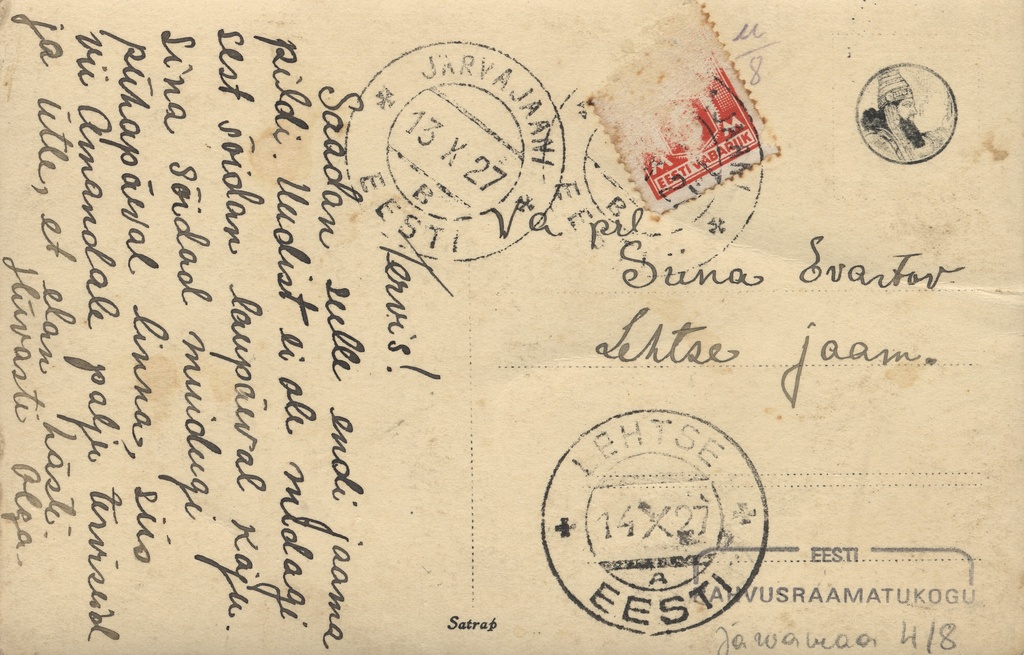 Tervis!
Saadan sulle endi jaama
pildi. Uudist ei ole midagi
sest sõidan laupäeval koju.
Sina sõidad muidugi
pühapäeval linna, siis
vii Amandale palju terviseid
ja ütle, et elan hästi.
Jluvasti Olga.
JÄRVA-JAANI
13 X 27
B
EESTI
EESTI VABARIIK
B
EE
11/8
Va prl.
Siina Evartov
Lehtse jaam.
LEHTSE
14 X 27
A
EESTI
EESTI
RAHVUSRAAMATUKOGU
Järvamaa 4/8
Satrap